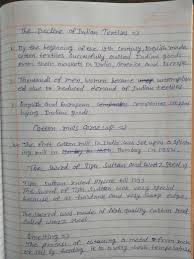 The Decline of Indian Textiles =>
By the beginning of the 19th century, English made
cotton textiles successfully ousted Indian goods
from their markets in India, America and Europe.
Thousands of men, women became unemploy
ed due to reduced demand of Indian textiles.
English and European companies stopped
buying Indian goods.
Cotton mills came up =>
The first cotton mill in India was set up as a spinn
ing mill in Bombay in 1854.
The Sword of Tipu Sultan and Wootz Steel =>
Tipu Sultan ruled Mysore till 1799
The Sword of Tipu Sultan was very special
because of its hardness and very sharp edges.
The Sword was made of high quality carbon steel
called wootz steel.
Smelting =>
The process of obtaining a metal from rock
or soil by heating it to a very high